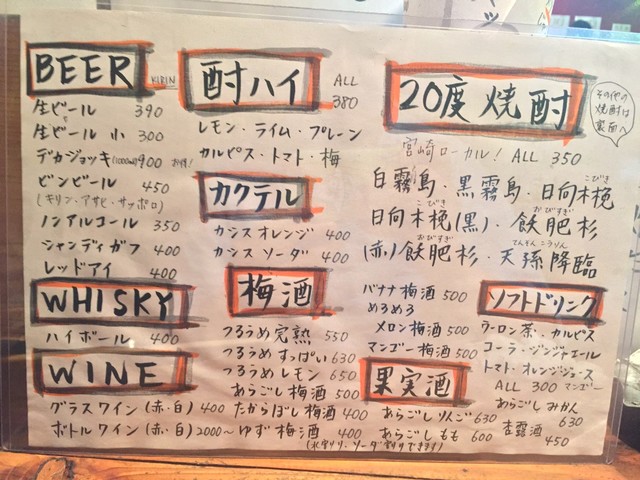 BEER KIRIN
生ビール 390
生ビール 小 300
デカジョッキ(1000ml) 900 お得!
ビンビール 450
(キリン・アサヒ・サッポロ)
ノンアルコール 350
シャンディガフ 400
レッドアイ 400
WHISKY
ハイボール 400
WINE
グラスワイン(赤・白) 400
ボトルワイン(赤・白) 2000〜
酎ハイ ALL 380
レモン・ライム・プレーン
カルピス・トマト・梅
カクテル
カシスオレンジ 400
カシスソーダ 400
梅酒
つるうめ完熟 550
つるうめすっぱい 630
つるうめレモン 650
あらごし梅酒 500
たからぼし梅酒 400
ゆず梅酒 400
(水割り・ソーダ割りできます)
バナナ梅酒 500
めろめろ
メロン梅酒 500
マンゴー梅酒 500
果実酒
あらごしりんご 630
あらごしもも 600
あらごしみかん 630
杏露酒 450
20度焼酎
その他の
焼酎は
裏面へ
宮崎ローカル! ALL 350
白霧島・黒霧島・日向木挽
こびき
日向木挽(黒)・飫肥杉
こびき おびすぎ
(赤)飫肥杉・天孫降臨
おびすぎ てんそんこうりん
ソフトドリンク
ウーロン茶・カルピス
コーラ・ジンジャエール
トマト・オレンジジュース
ALL 300 マンゴー